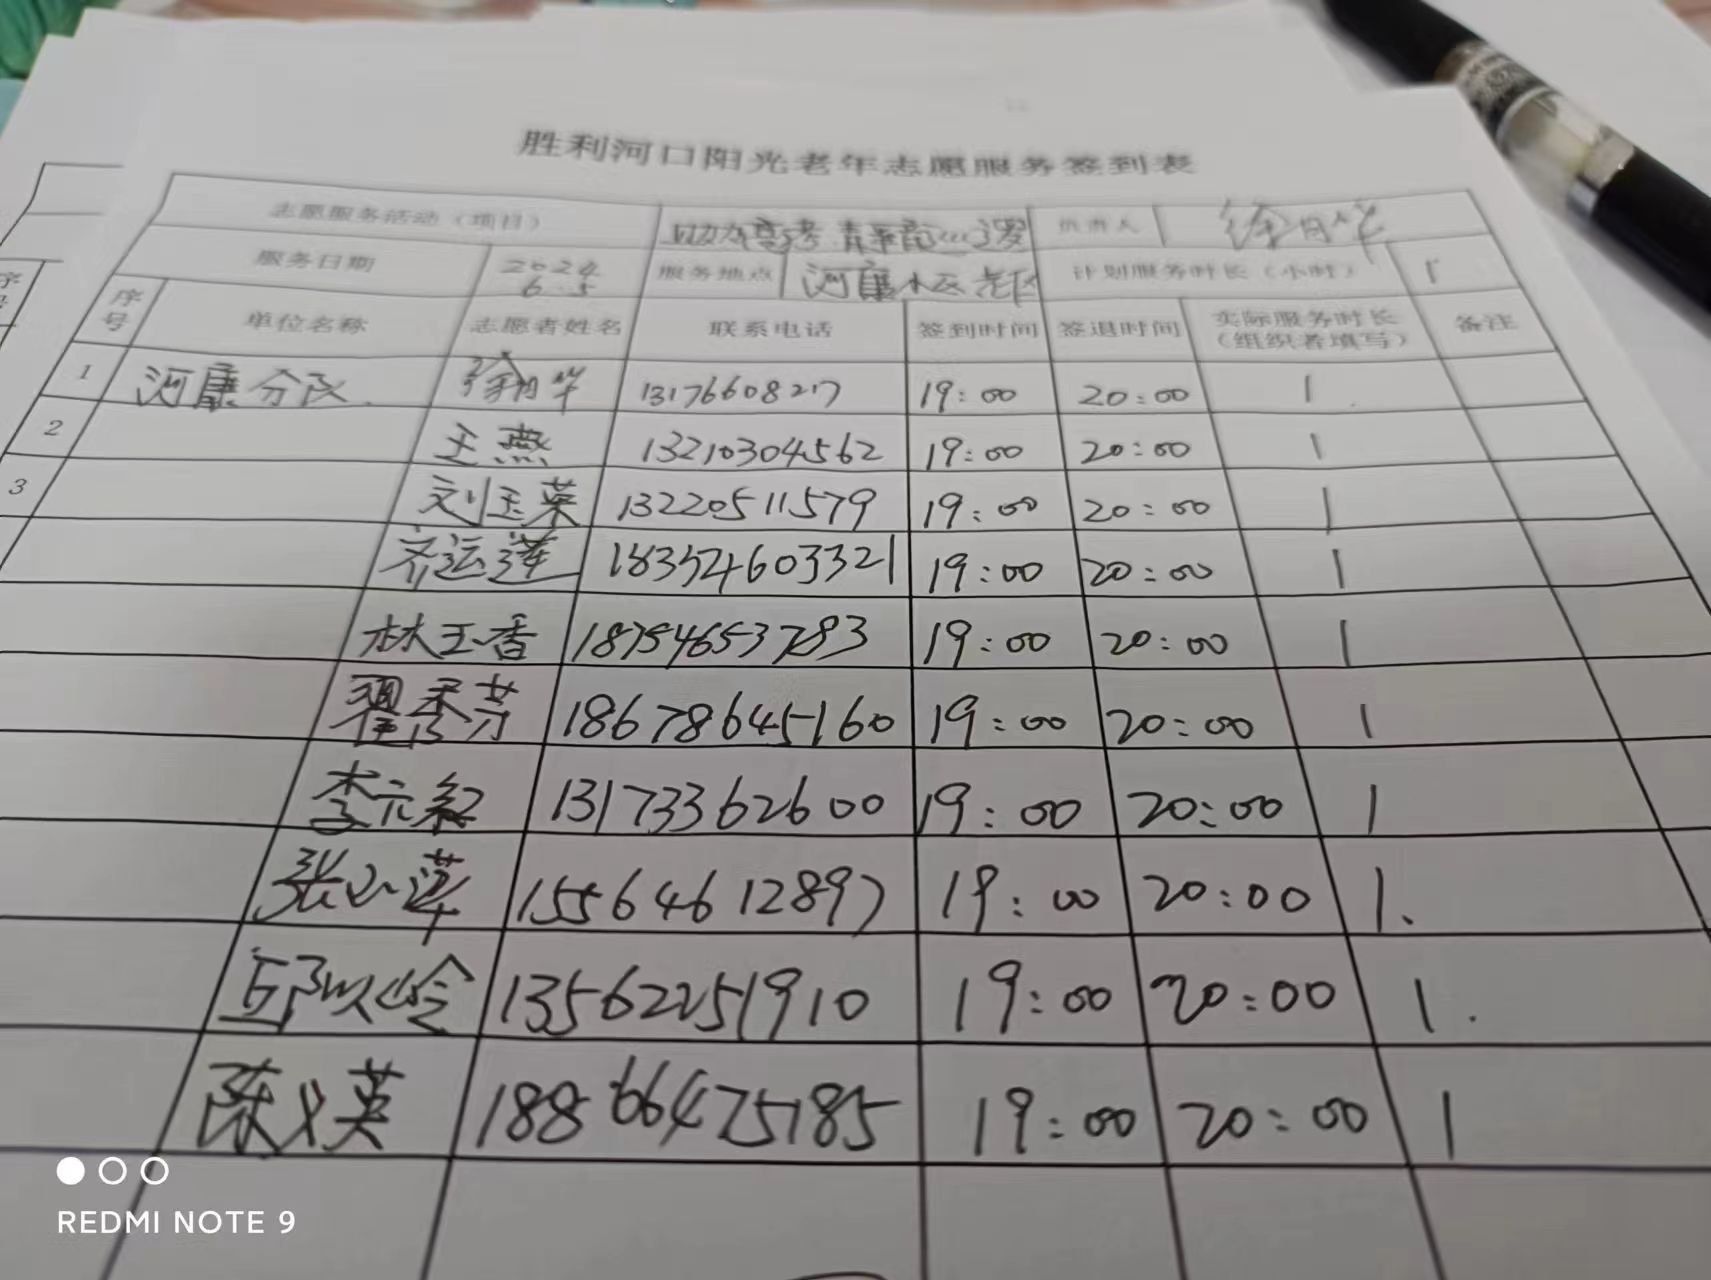 胜利河口阳光老年志愿服务签到表
志愿服务活动（项目） 助力高考 负责人 徐月华
服务日期 2024 6.5 服务地点 河康小区 计划服务时长（小时） 1
序号 单位名称 志愿者姓名 联系电话 签到时间 签退时间 实际服务时长（组织者填写） 备注
1 河康分队 徐月华 13176608217 19:00 20:00 1
2 王燕 13210304562 19:00 20:00 1
3 刘玉英 13220511579 19:00 20:00 1
齐运莲 18354603321 19:00 20:00 1
林玉香 18754653783 19:00 20:00 1
翟秀芳 18678645160 19:00 20:00 1
李元红 13173362600 19:00 20:00 1
张小莲 15564612897 19:00 20:00 1.
13562251910 19:00 20:00 1.
陈义英 18866475185 19:00 20:00 1
序号
REDMI NOTE 9